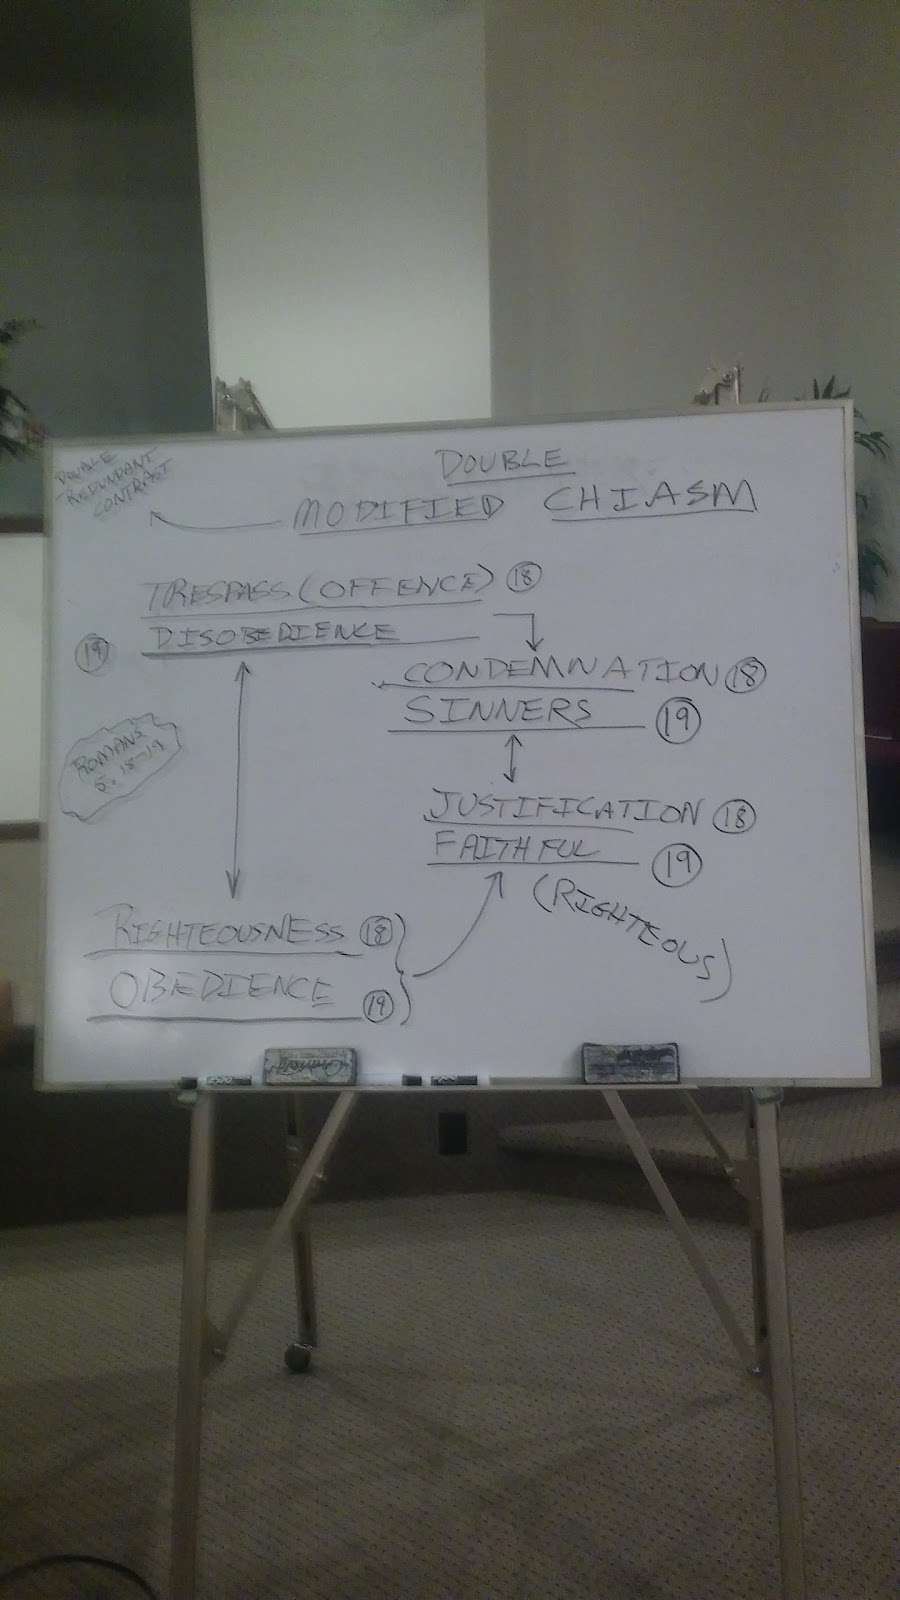 DOUBLE
REDUNDANT
CONTRAST
DOUBLE
MODIFIED CHIASM
TRESPASS (OFFENCE) 18
19 DISOBEDIENCE
CONDEMNATION 18
SINNERS 19
ROMANS
5:18-19
JUSTIFICATION 18
FAITHFUL 19
(RIGHTEOUS)
RIGHTEOUSNESS 18
OBEDIENCE 19